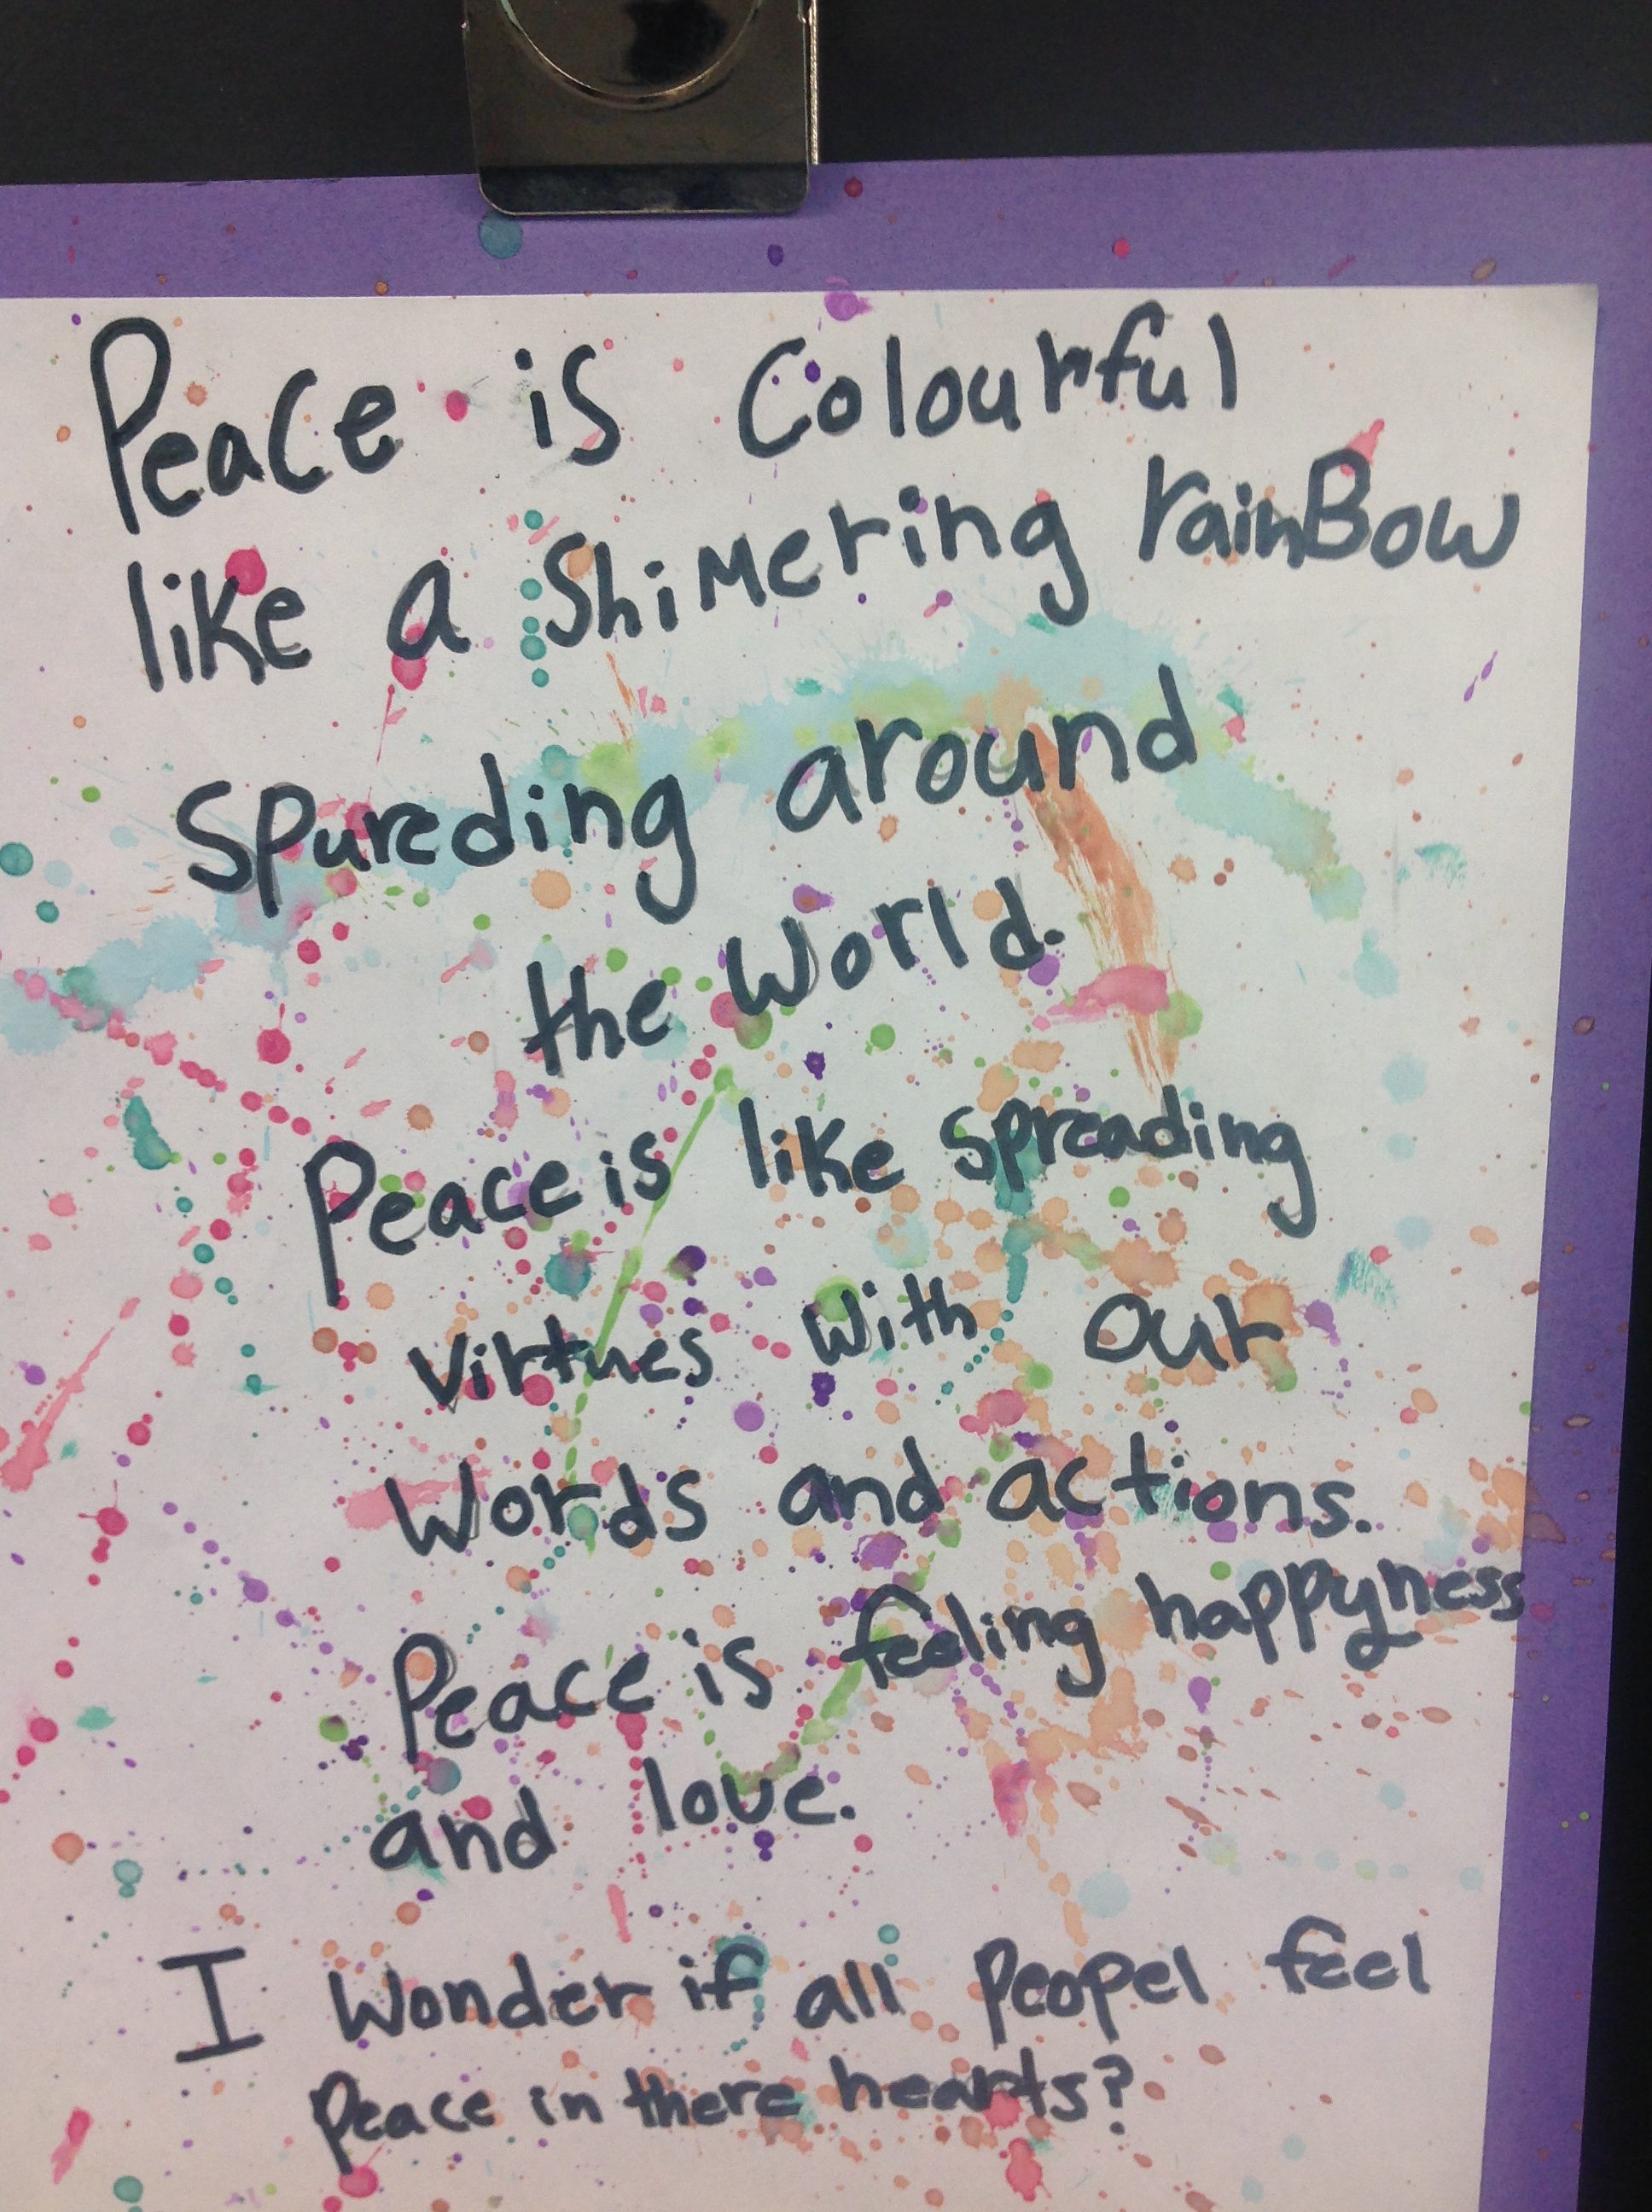 Peace is Colourful
like a ShiMering rainBow
Spureding around
the World.
Peace is like Spreading
virtues with our
Words and actions.
Peace is feeling happyness
and love.
I Wonder if all Peopel feel
Peace in there hearts?